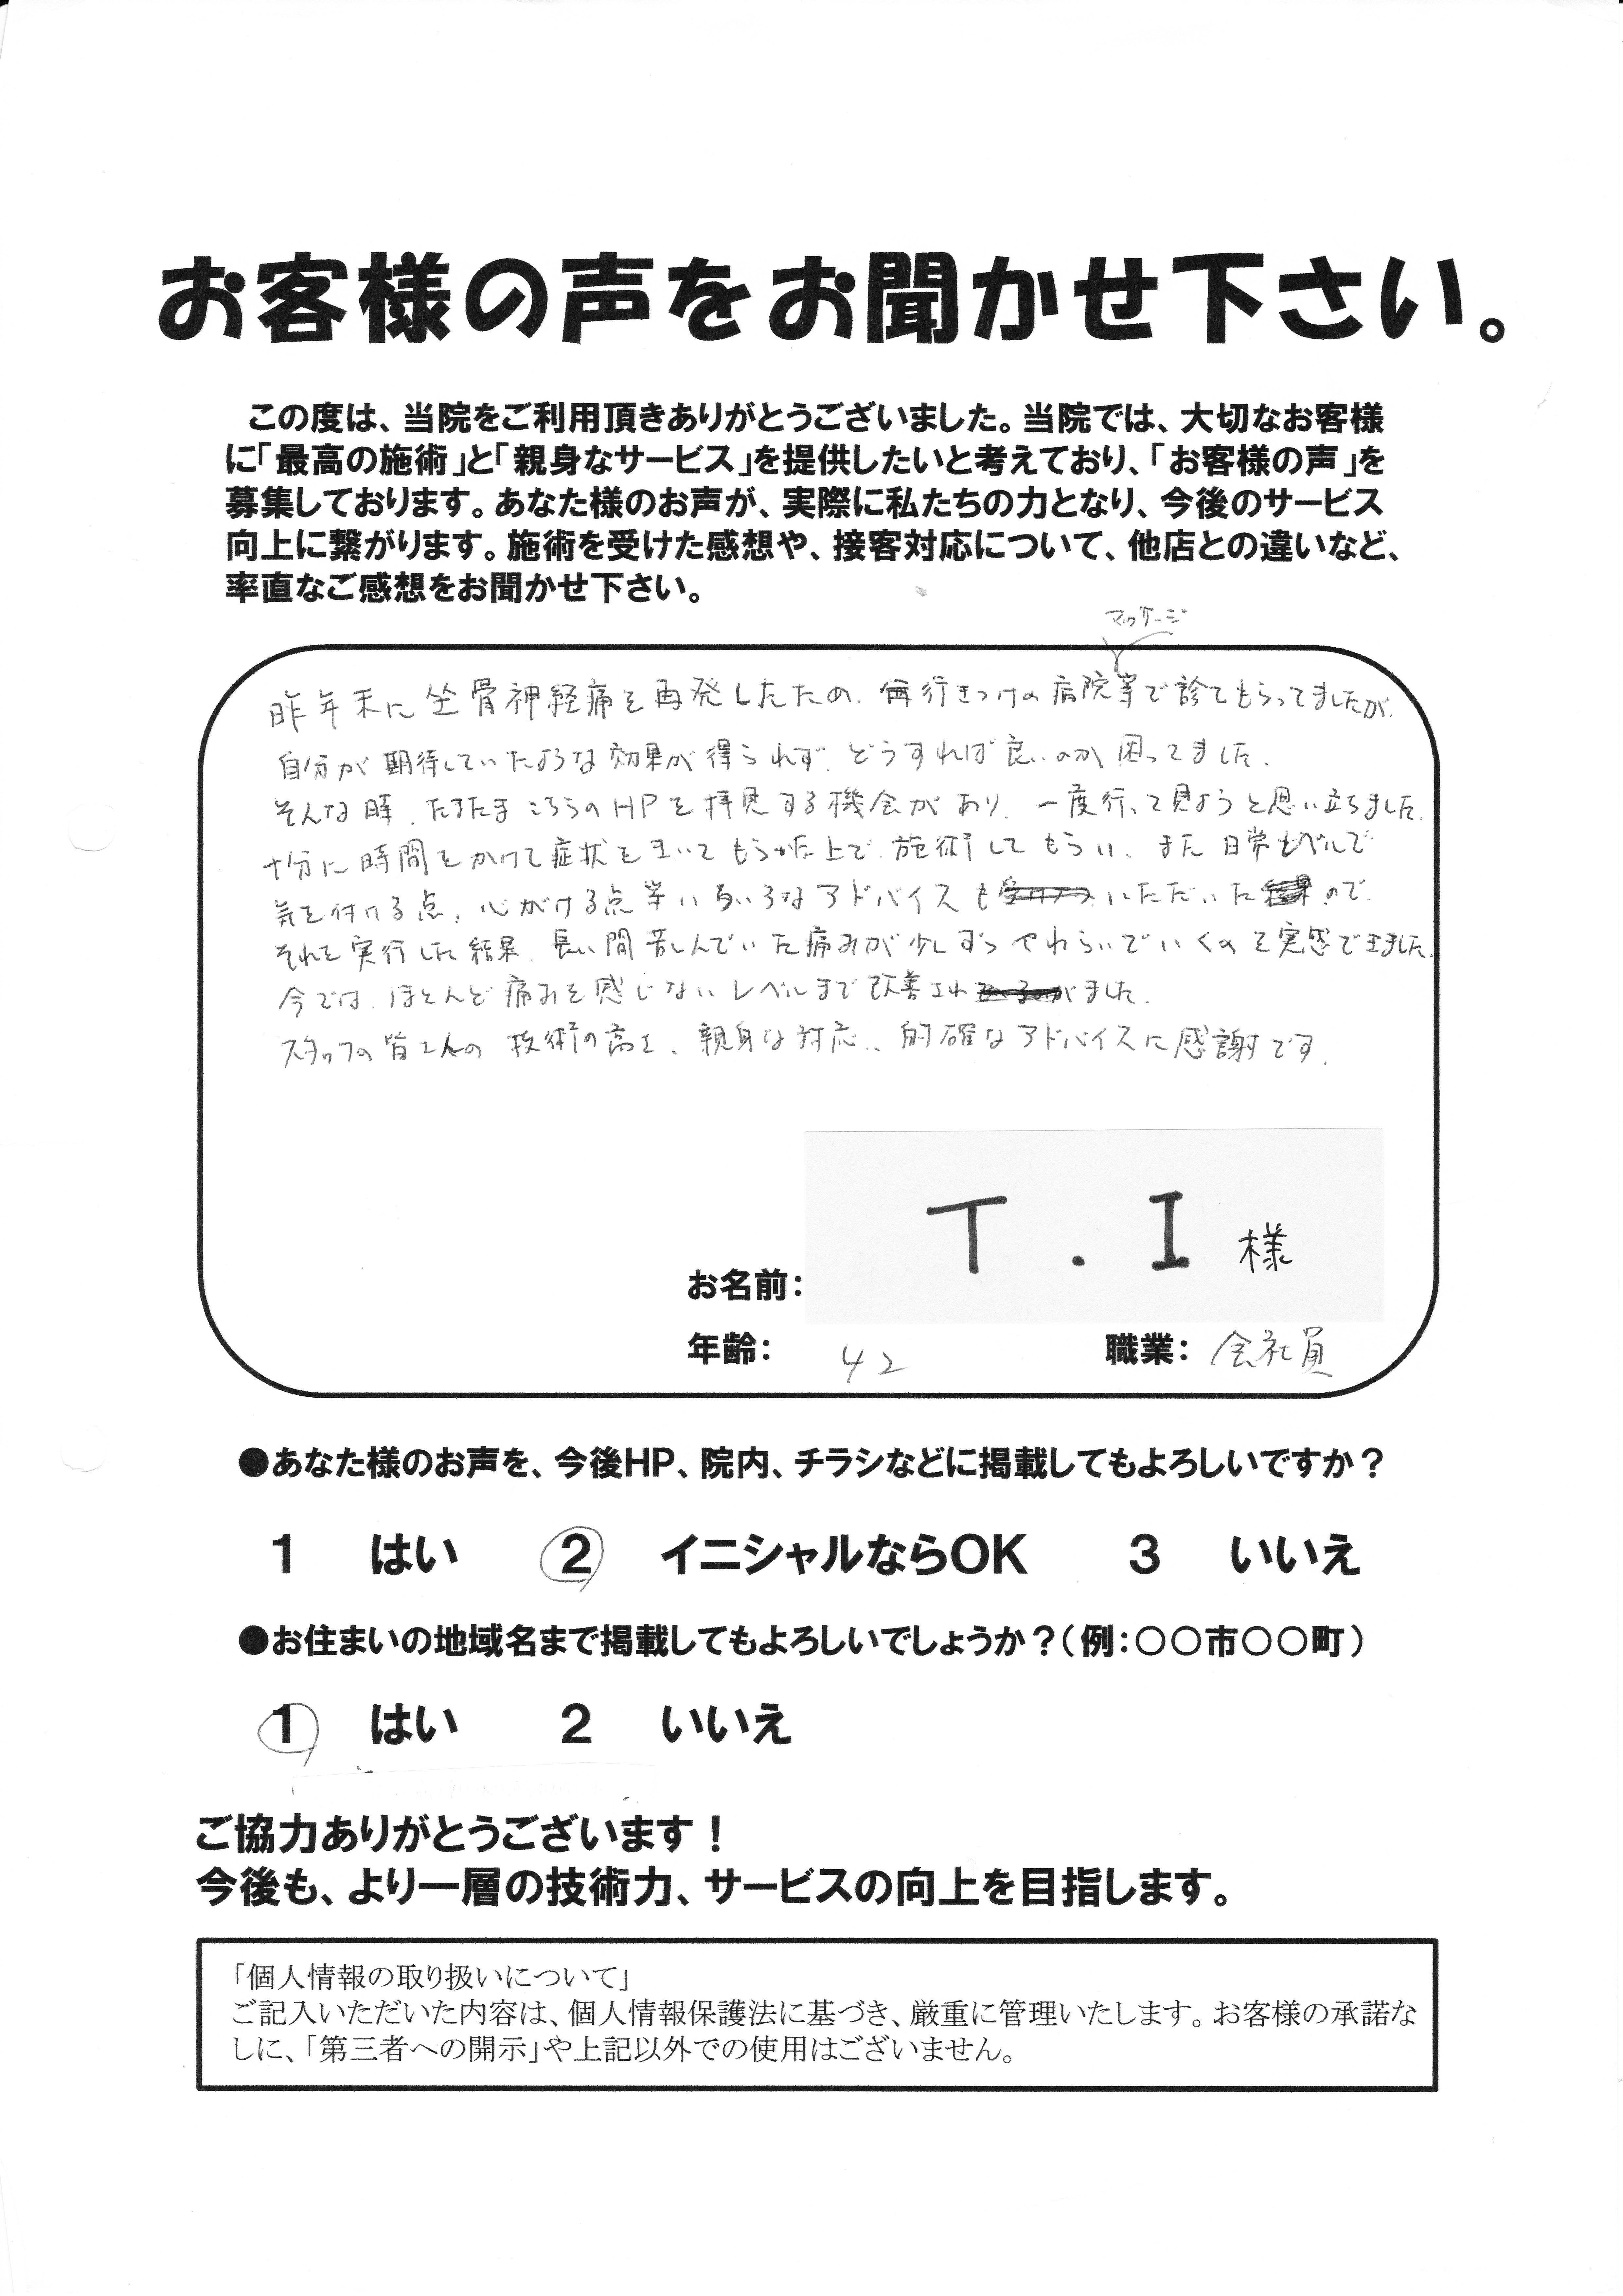 お客様の声をお聞かせ下さい。
この度は、当院をご利用頂きありがとうございました。当院では、大切なお客様
に「最高の施術」と「親身なサービス」を提供したいと考えており、「お客様の声」を
募集しております。あなた様のお声が、実際に私たちの力となり、今後のサービス
向上に繋がります。施術を受けた感想や、接客対応について、他店との違いなど、
率直なご感想をお聞かせ下さい。
マッサージ
昨年末に坐骨神経痛を再発したため、行きつけの病院等で診てもらってましたが、
自分が期待していたような効果が得られず、どうすれば良いのか困ってました。
そんな時、たまたまこちらのHPを拝見する機会があり、一度行って見ようと思い立ちました。
十分に時間をかけて症状をきいてもらった上で、施術してもらい、また日常レベルで
気を付ける点、心がける点等いろいろなアドバイスもいただいたので、
それを実行した結果、長い間苦しんでいた痛みが少しずつやわらいでいくのを実感できました。
今では、ほとんど痛みを感じないレベルまで改善されました。
スタッフの皆さんの技術の高さ、親身な対応、的確なアドバイスに感謝です。
お名前： T . I 様
年齢： 42 職業： 会社員
●あなた様のお声を、今後HP、院内、チラシなどに掲載してもよろしいですか？
1 はい 2 イニシャルならOK 3 いいえ
●お住まいの地域名まで掲載してもよろしいでしょうか？（例：○○市○○町）
1 はい 2 いいえ
ご協力ありがとうございます！
今後も、より一層の技術力、サービスの向上を目指します。
「個人情報の取り扱いについて」
ご記入いただいた内容は、個人情報保護法に基づき、厳重に管理いたします。お客様の承諾な
しに、「第三者への開示」や上記以外での使用はございません。